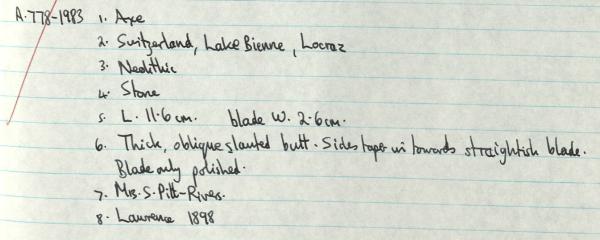 A.778-1983 1. Axe
2. Switzerland, Lake Bienne, Locraz
3. Neolithic
4. Stone
5. L. 11.6 cm. blade W. 2.6 cm.
6. Thick, oblique slanted butt. Sides taper in towards straightish blade.
Blade only polished.
7. Mrs. S. Pitt-Rivers.
8. Lawrence 1898